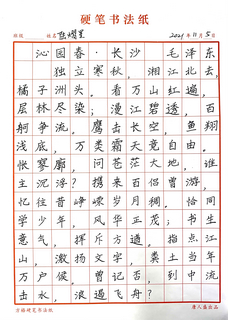 硬笔书法纸
班级 姓名 2021年11月5日
沁园春·长沙 毛泽东
独立寒秋，湘江北去，
橘子洲头，看万山红遍，
层林尽染；漫江碧透，百
舸争流。鹰击长空，鱼翔
浅底，万类霜天竞自由。
怅寥廓，问苍茫大地，谁
主沉浮？携来百侣曾游，
忆往昔峥嵘岁月稠，恰同
学少年，风华正茂；书生
意气，挥斥方遒，指点江
山，激扬文字，粪土当年
万户侯，曾记否，到中流
击水，浪遏飞舟？
方格硬笔书法纸